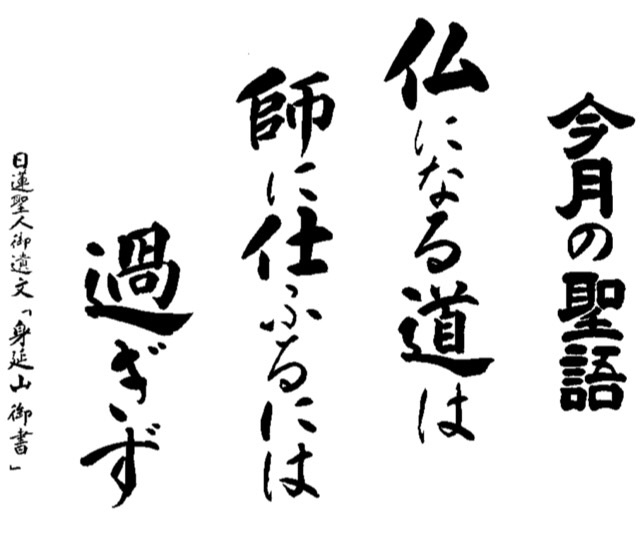 今月の聖語
仏になる道は
師に仕ふるには
過ぎず
日蓮聖人御遺文「身延山御書」